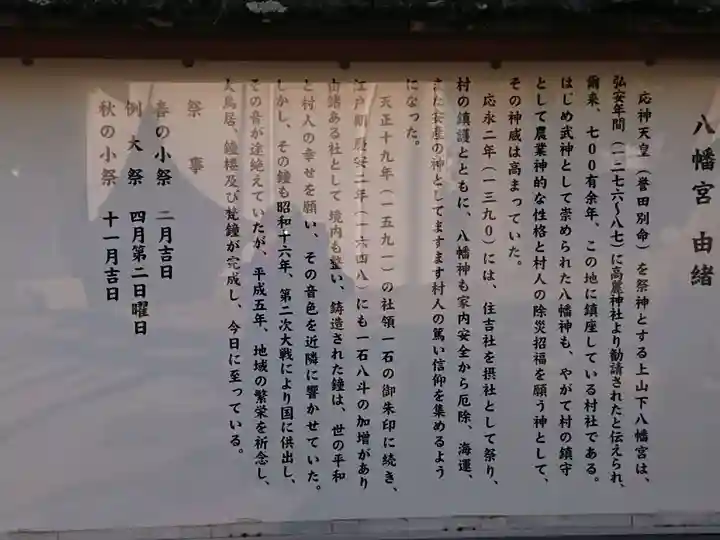 八幡宮 由緒
応神天皇（誉田別命）を祭神とする上山下八幡宮は、
弘安年間（一二七六〜八七）に高麗神社より勧請されたと伝えられ、
爾来、七00有余年、この地に鎮座している村社である。
はじめ武神として崇められた八幡神も、やがて村の鎮守
として農業神的な性格と村人の除災招福を願う神として、
その神威は高まっていた。
応永二年（一三九0）には、住吉社を摂社として祭り、
村の鎮護とともに、八幡神も家内安全から厄除、海運、
また安産の神としてますます村人の篤い信仰を集めるよう
になった。
天正十九年（一五九一）の社領一石の御朱印に続き、
江戸期 慶安二年（一六四八）にも一石八斗の加増があり
由緒ある社として境内も整い、鋳造された鐘は、世の平和
と村人の幸せを願い、その音色を近隣に響かせていた。
しかし、その鐘も昭和十六年、第二次大戦により国に供出し、
その音が途絶えていたが、平成五年、地域の繁栄を祈念し、
大鳥居、鐘楼及び梵鐘が完成し、今日に至っている。
祭 事
春の小祭 二月吉日
例 大 祭 四月第二日曜日
秋の小祭 十一月吉日